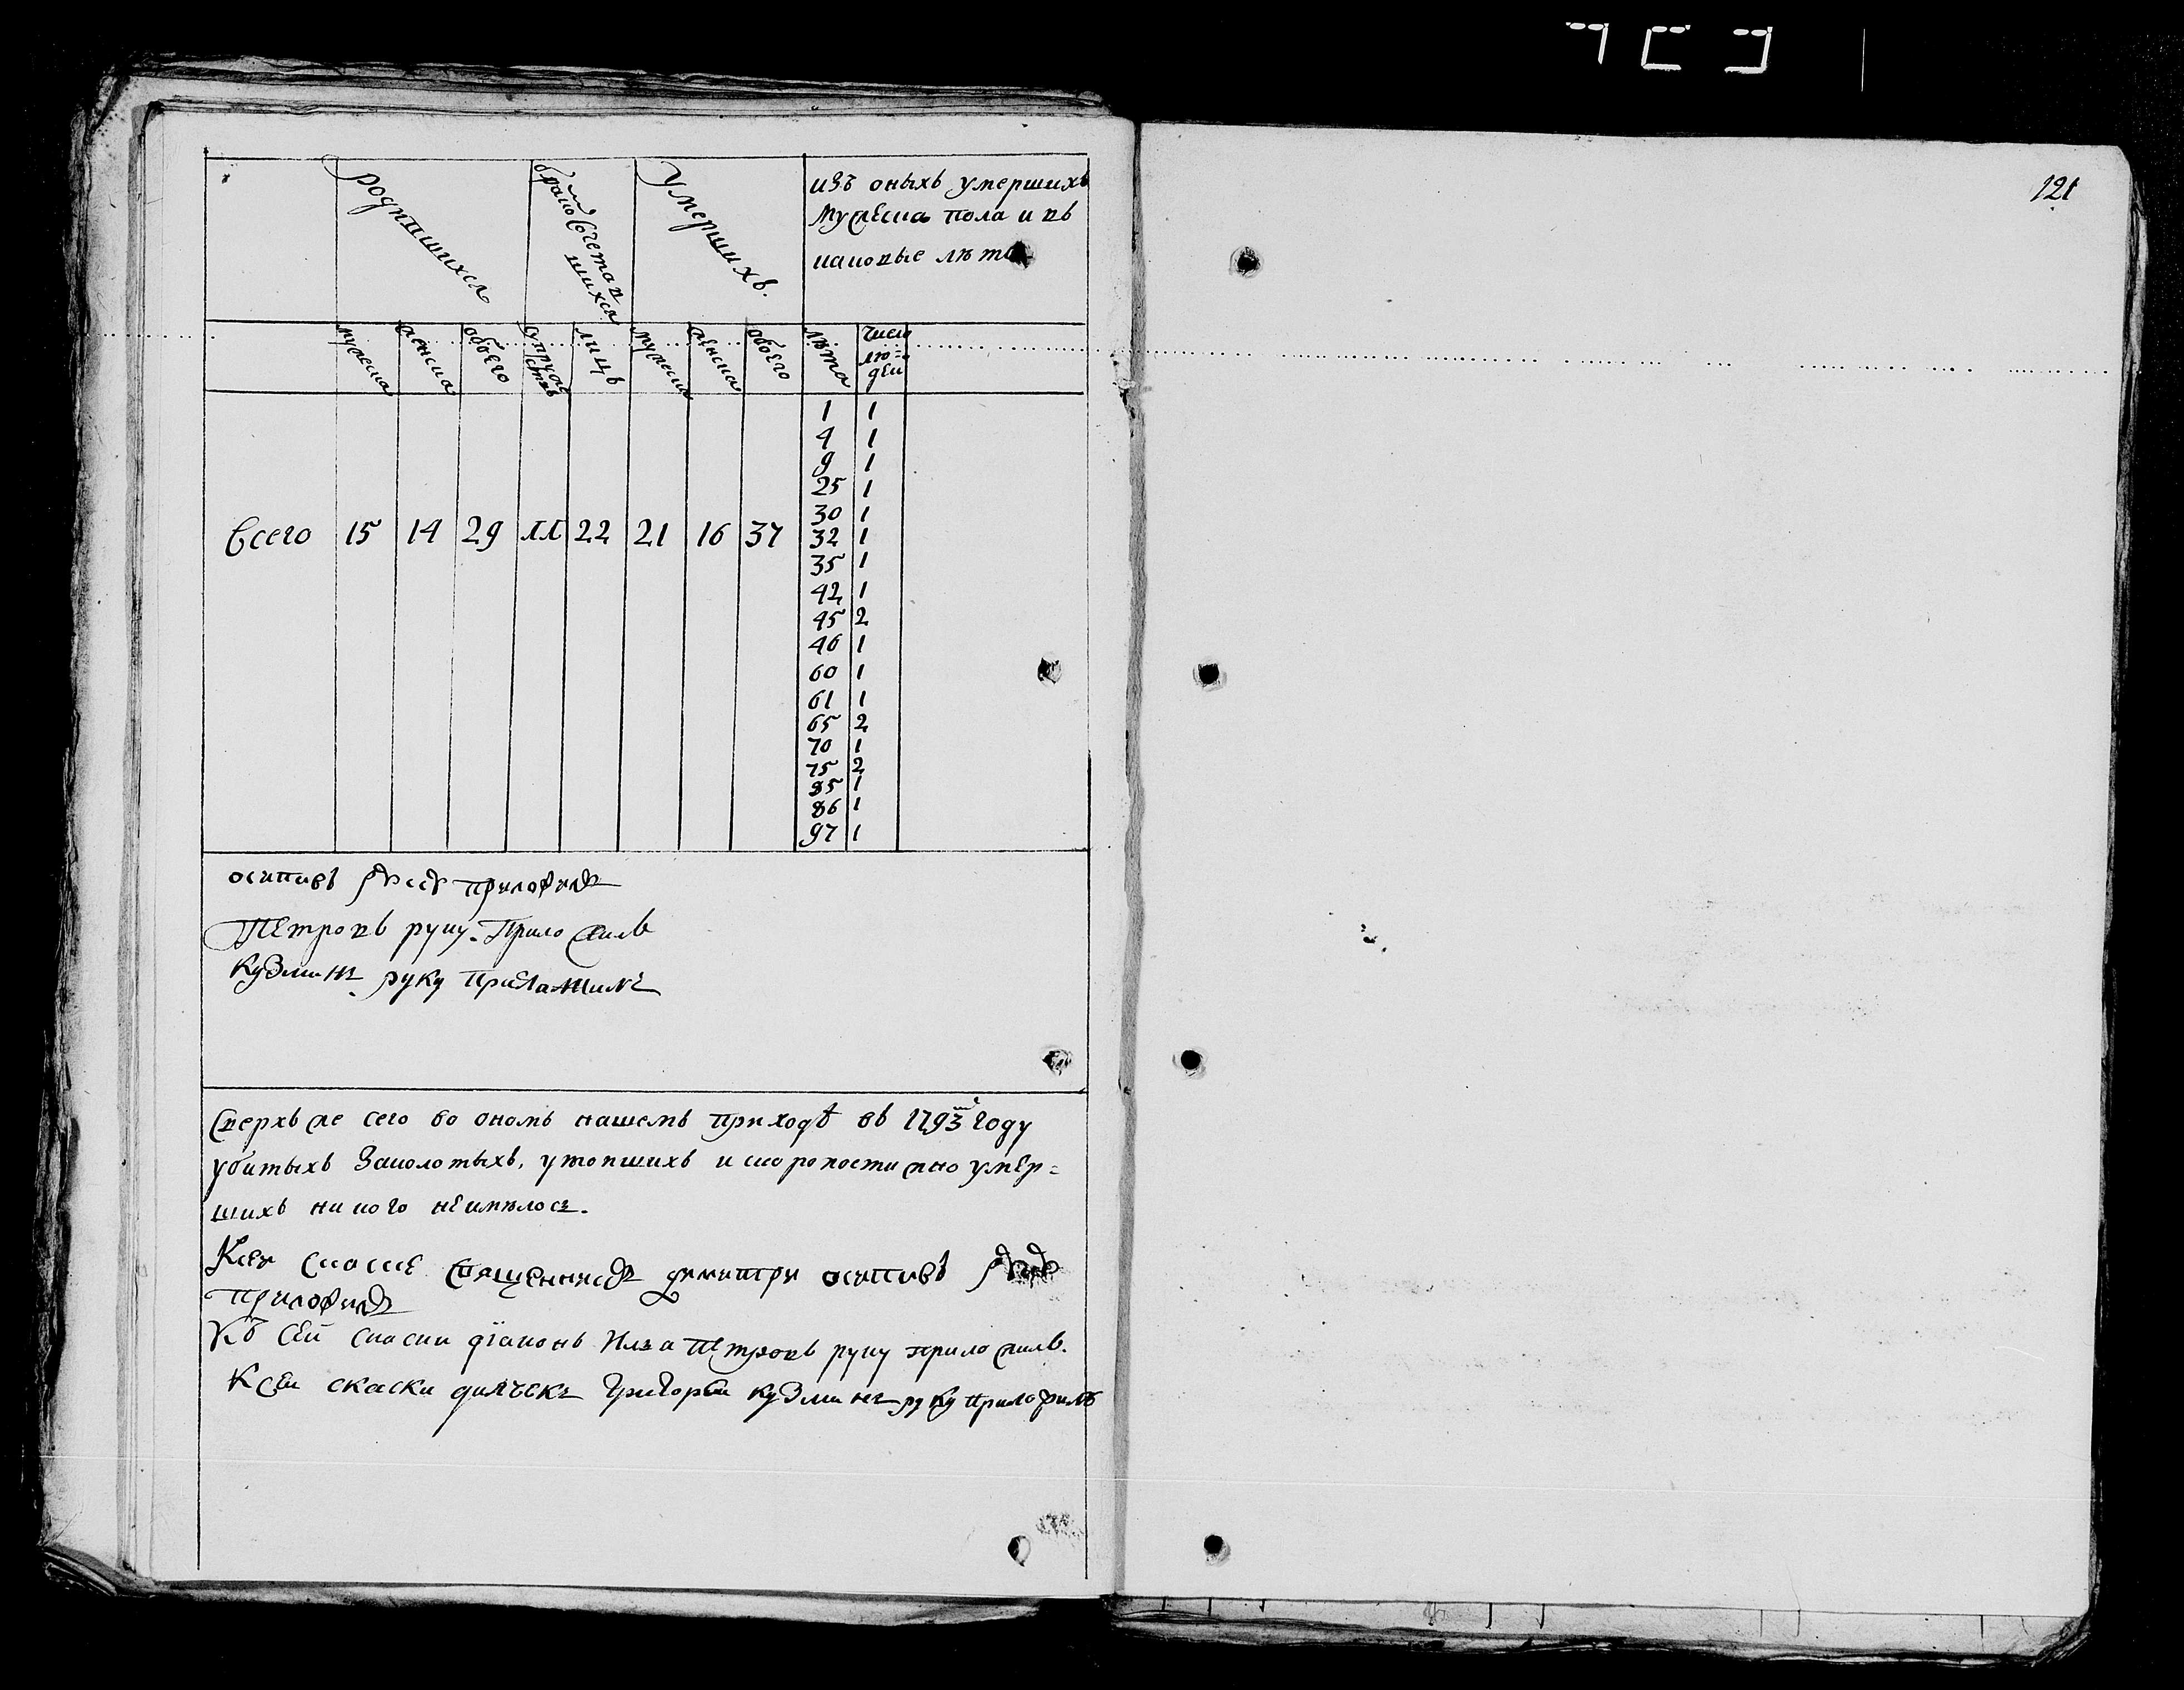 121
родившихся
бракосочетав
шихся
умершихъ.
изъ оныхъ умершихъ
мужеска пола и въ
каковые лѣта
мужеска
женска
обоего
супруж
ствъ
лицъ
мужеска
женска
обоего
лѣта
число
лю=
дей
Всего 15 14 29 11 22 21 16 37
1 1
4 1
9 1
25 1
30 1
32 1
35 1
42 1
45 2
46 1
60 1
61 1
65 2
70 1
75 2
85 1
86 1
97 1
осиповъ руку приложилъ
Петровъ руку приложилъ
Кузминъ руку прилажилъ
Сверхъ же сего во ономъ нашемъ приходѣ въ 1793м годy
убитыхъ заколотыхъ, утопшихъ и скоропостижно умер=
шихъ никого неимѣлось.
Ксеи скаске священникъ димитри осиповъ руку
приложилъ
Къ сей скаски діаконъ Илья Петровъ руку приложилъ.
Ксеи скаски дьячекъ Григореи Кузминъ руку приложилъ